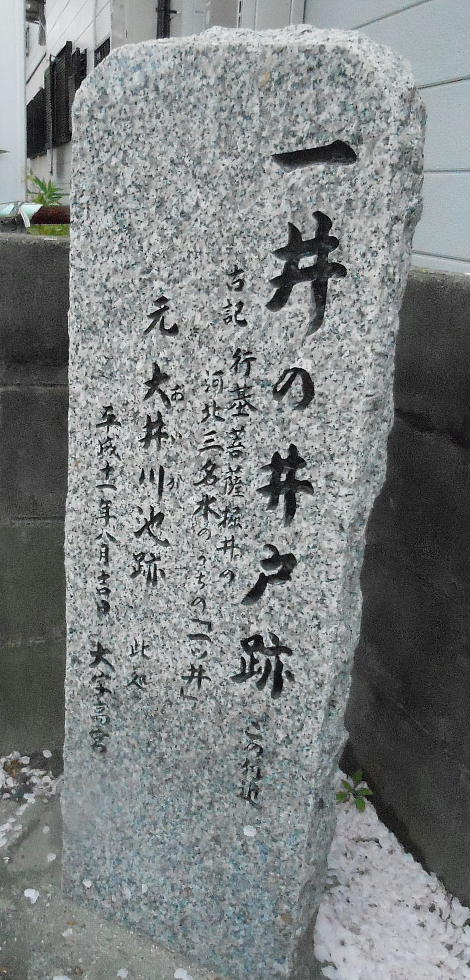 一井の井戸跡 この付近
古記 行基菩薩掘井の
河北三名水のうちの「一ッ井」
元 大井川池跡 此処
おおいがわ
平成十二年八月吉日 大字高宮